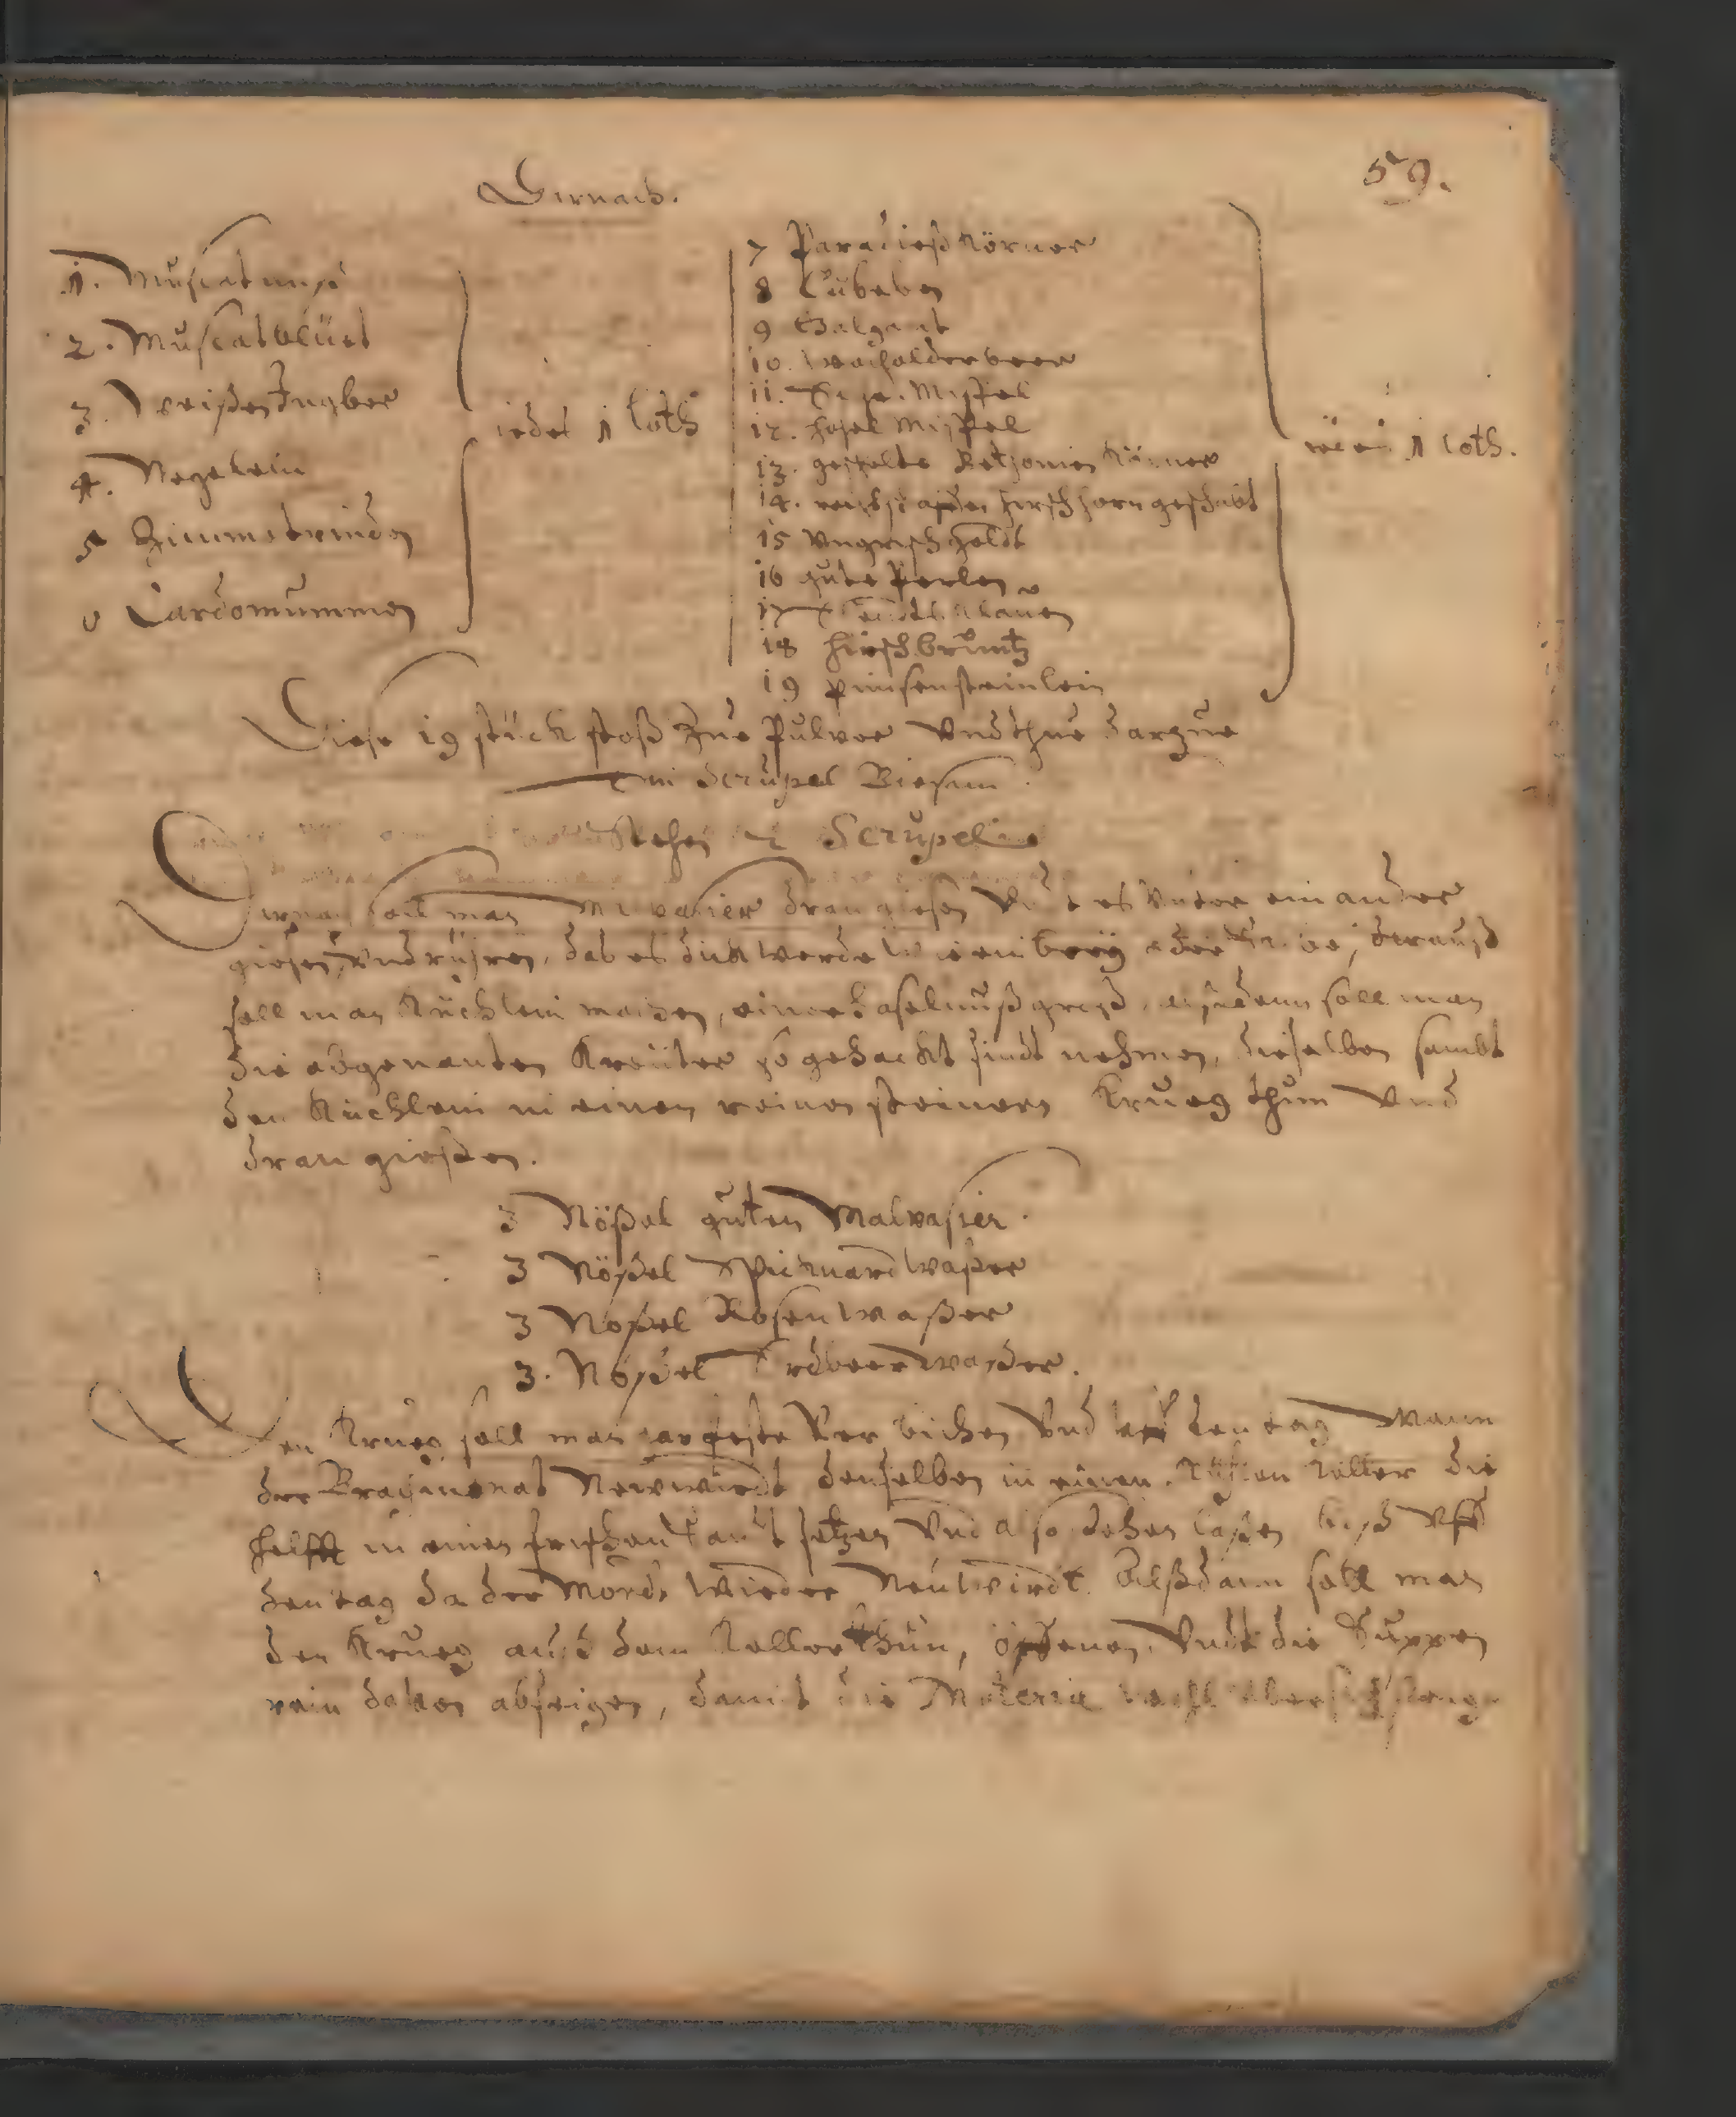 59.
Hirnach.
1. Muscatnuß
2. Muscatblüet
3. Weißen Ingber
4. Negelein
5 Zimmetrinden
6 Cardomummen
iedes 1 Loth
7 Paradieß Körner
8 Cubeben
9 Galgant
10. Wacholderbeer
11. Mispel
12. Hasel Mispel
13. gescelte Betzonien Körner
14. Hirschhorn geschabt
15 Ungrisch Goldt
16 gute Perlen
17 Elendtsklauen
18 Hirschbruntz
19 steinlein
1 Loth.
Diese 19 stück stoß Zue Pulver Vnd thue darzue
Ein Scrupel Biesam
Scrupel
Hirnach soll man Malvasier dran giesen Vndt es Vnter einander
giesen, Vnd rühren, das es dick werde Wie ein brey oder, daraus
soll man Küchlein machen, einer Haselnuß groß, alsdann soll man
die obgenanten Kreuter so gehackt sindt nehmen, dieselben sambt
den Küchlein in einen reinen steinern Krueg thun Vnd
dran gießen.
3 Nößel guten Malvasier.
3 Nößel Spicknard Waßer
3 Noßel Rosen Waßer
3. Nößel Erdbeer Waßer.
Den Krueg soll man gar feste Verbichen Vnd den tag Wann
der Brachmonat New wirdt denselben in einen Kühlen Keller die
helfft in einen frischen Sandt setzen Vnd also stehen laßen biß Vff
den tag da der Mondt Wieder Neu Wirdt. Alßdann soll man
den Krueg auß dem Keller thun, öffenen, Vndt die Suppen
rein davon abseigen, damit die Materia